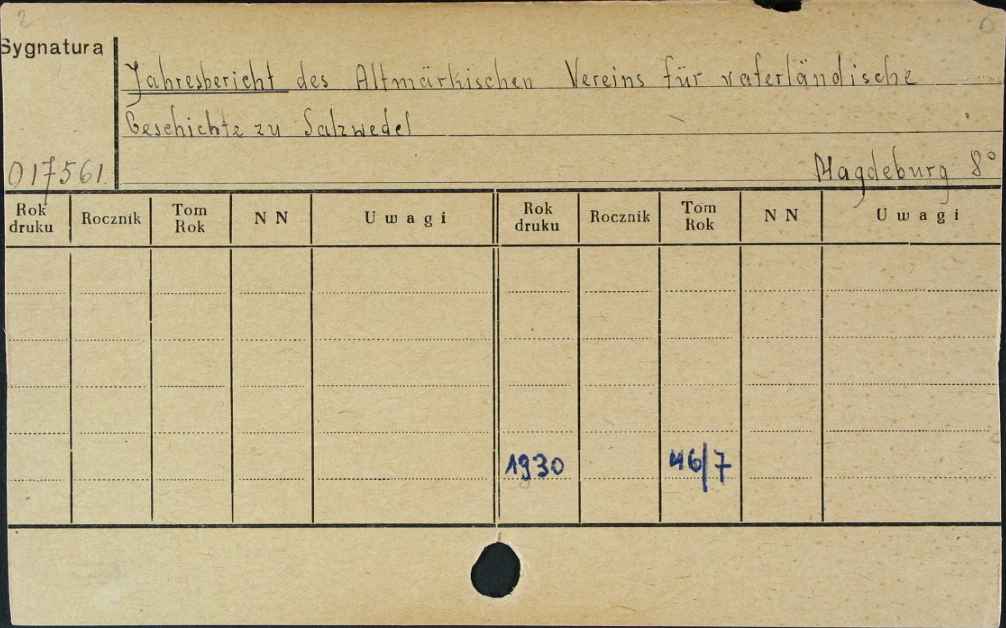 2
Sygnatura
Jahresbericht des Altmärkischen Vereins für vaterländische
Geschichte zu Salzwedel
017561. Magdeburg 8°
Rok druku Rocznik Tom Rok N N Uwagi Rok druku Rocznik Tom Rok N N Uwagi
1930 46/7